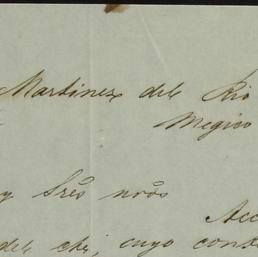 Martinez del Rio
Megico
y Sres nros
Acc
del cte, cuyo cont